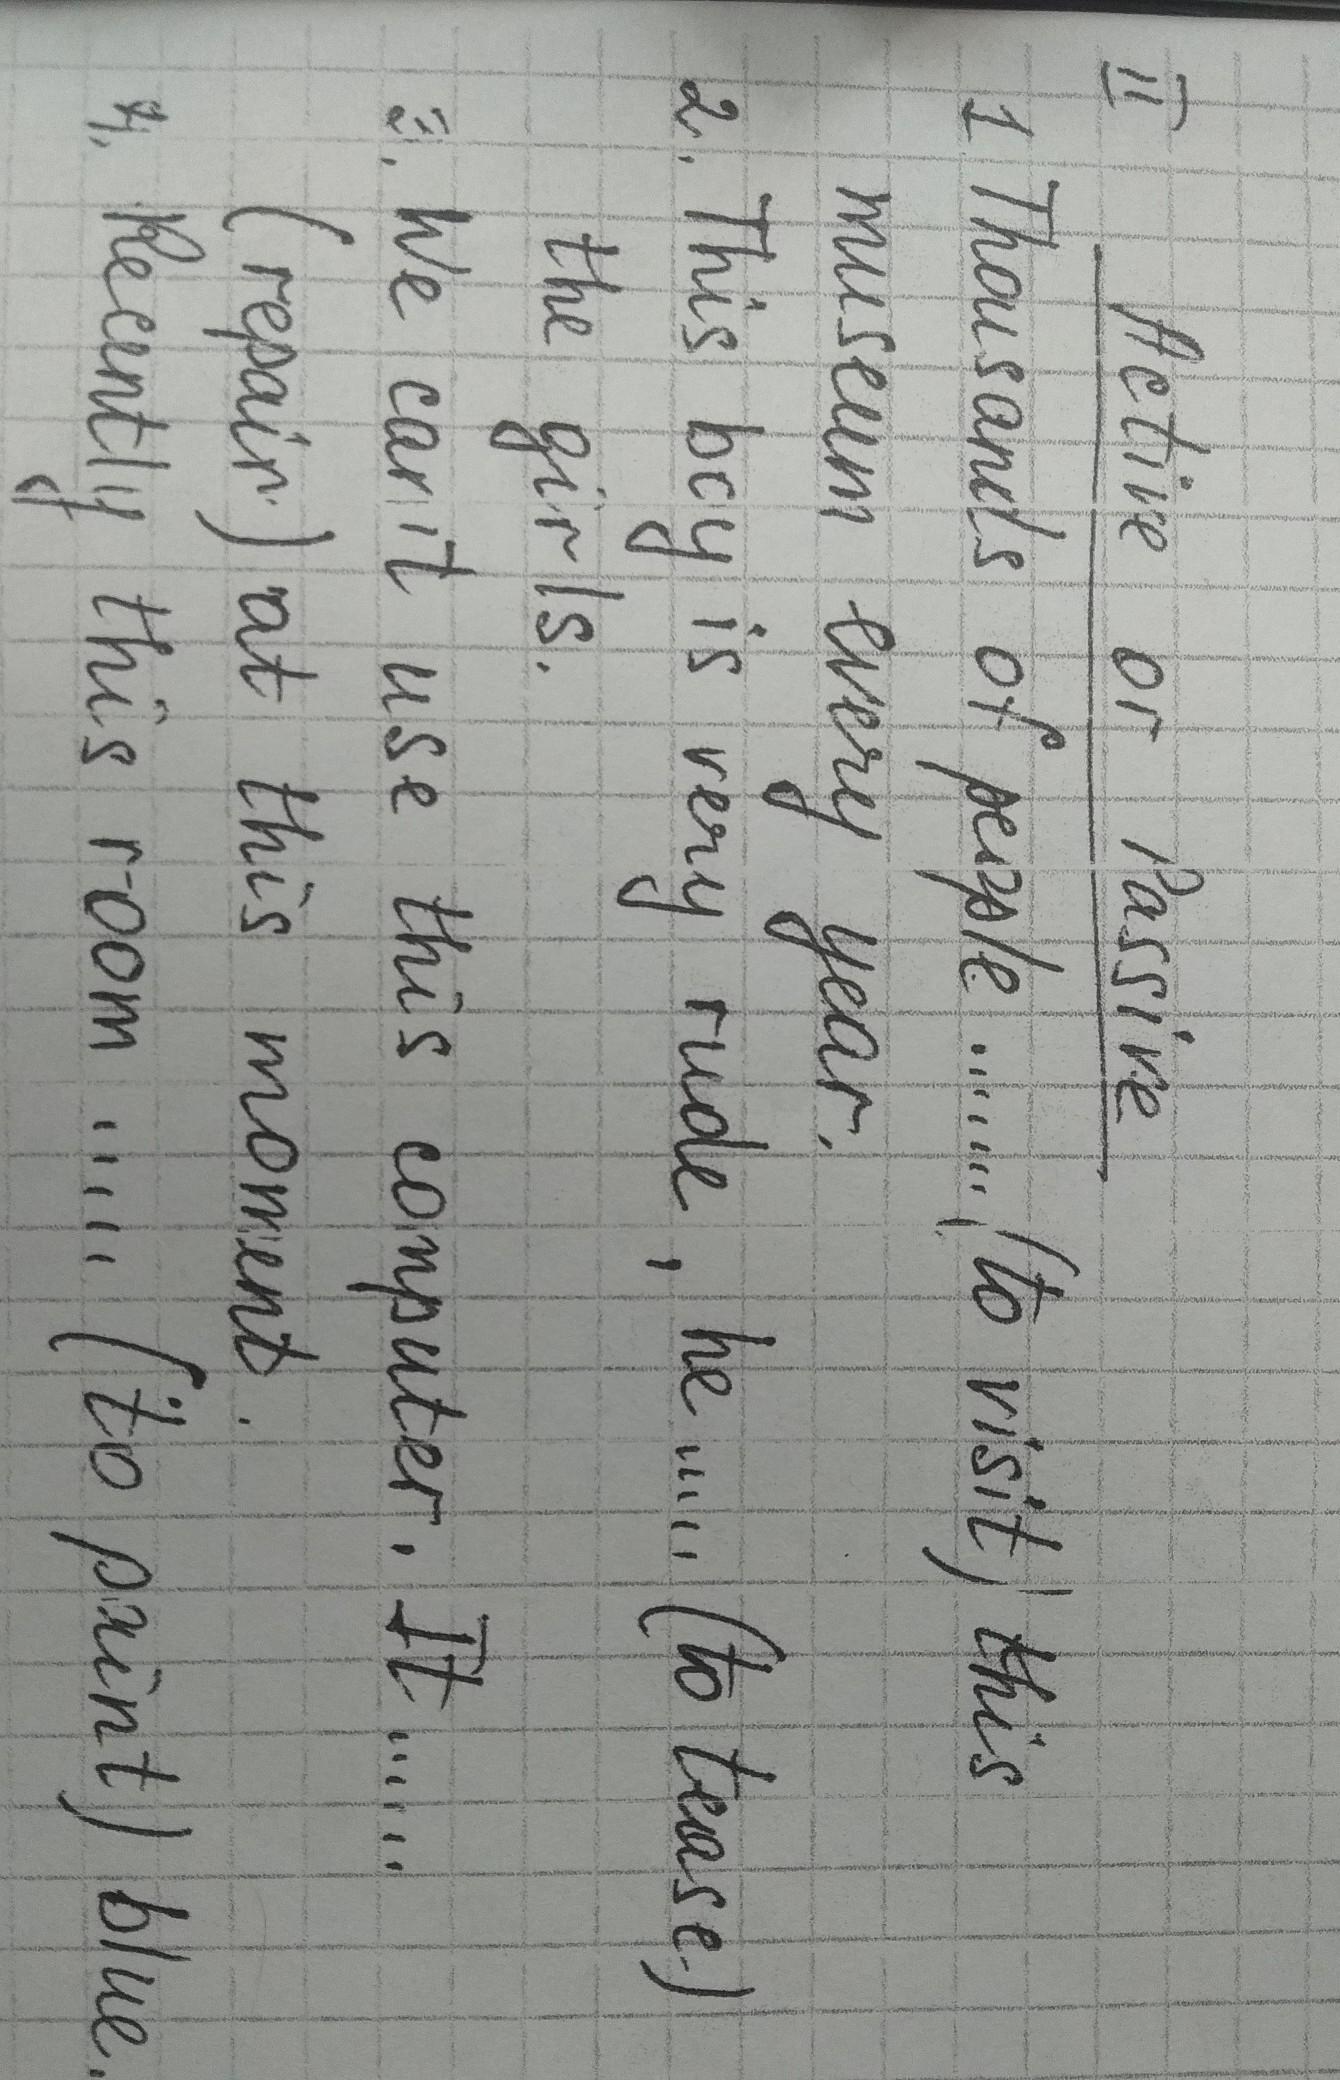 II
Active or Passive
1 Thousands of people ....... (to visit) this
museum every year.
2. This boy is very rude, he ..... (to tease)
the girls.
3. We can't use this computer. It .....
(repair) at this moment.
4. Recently this room ..... (to paint) blue.